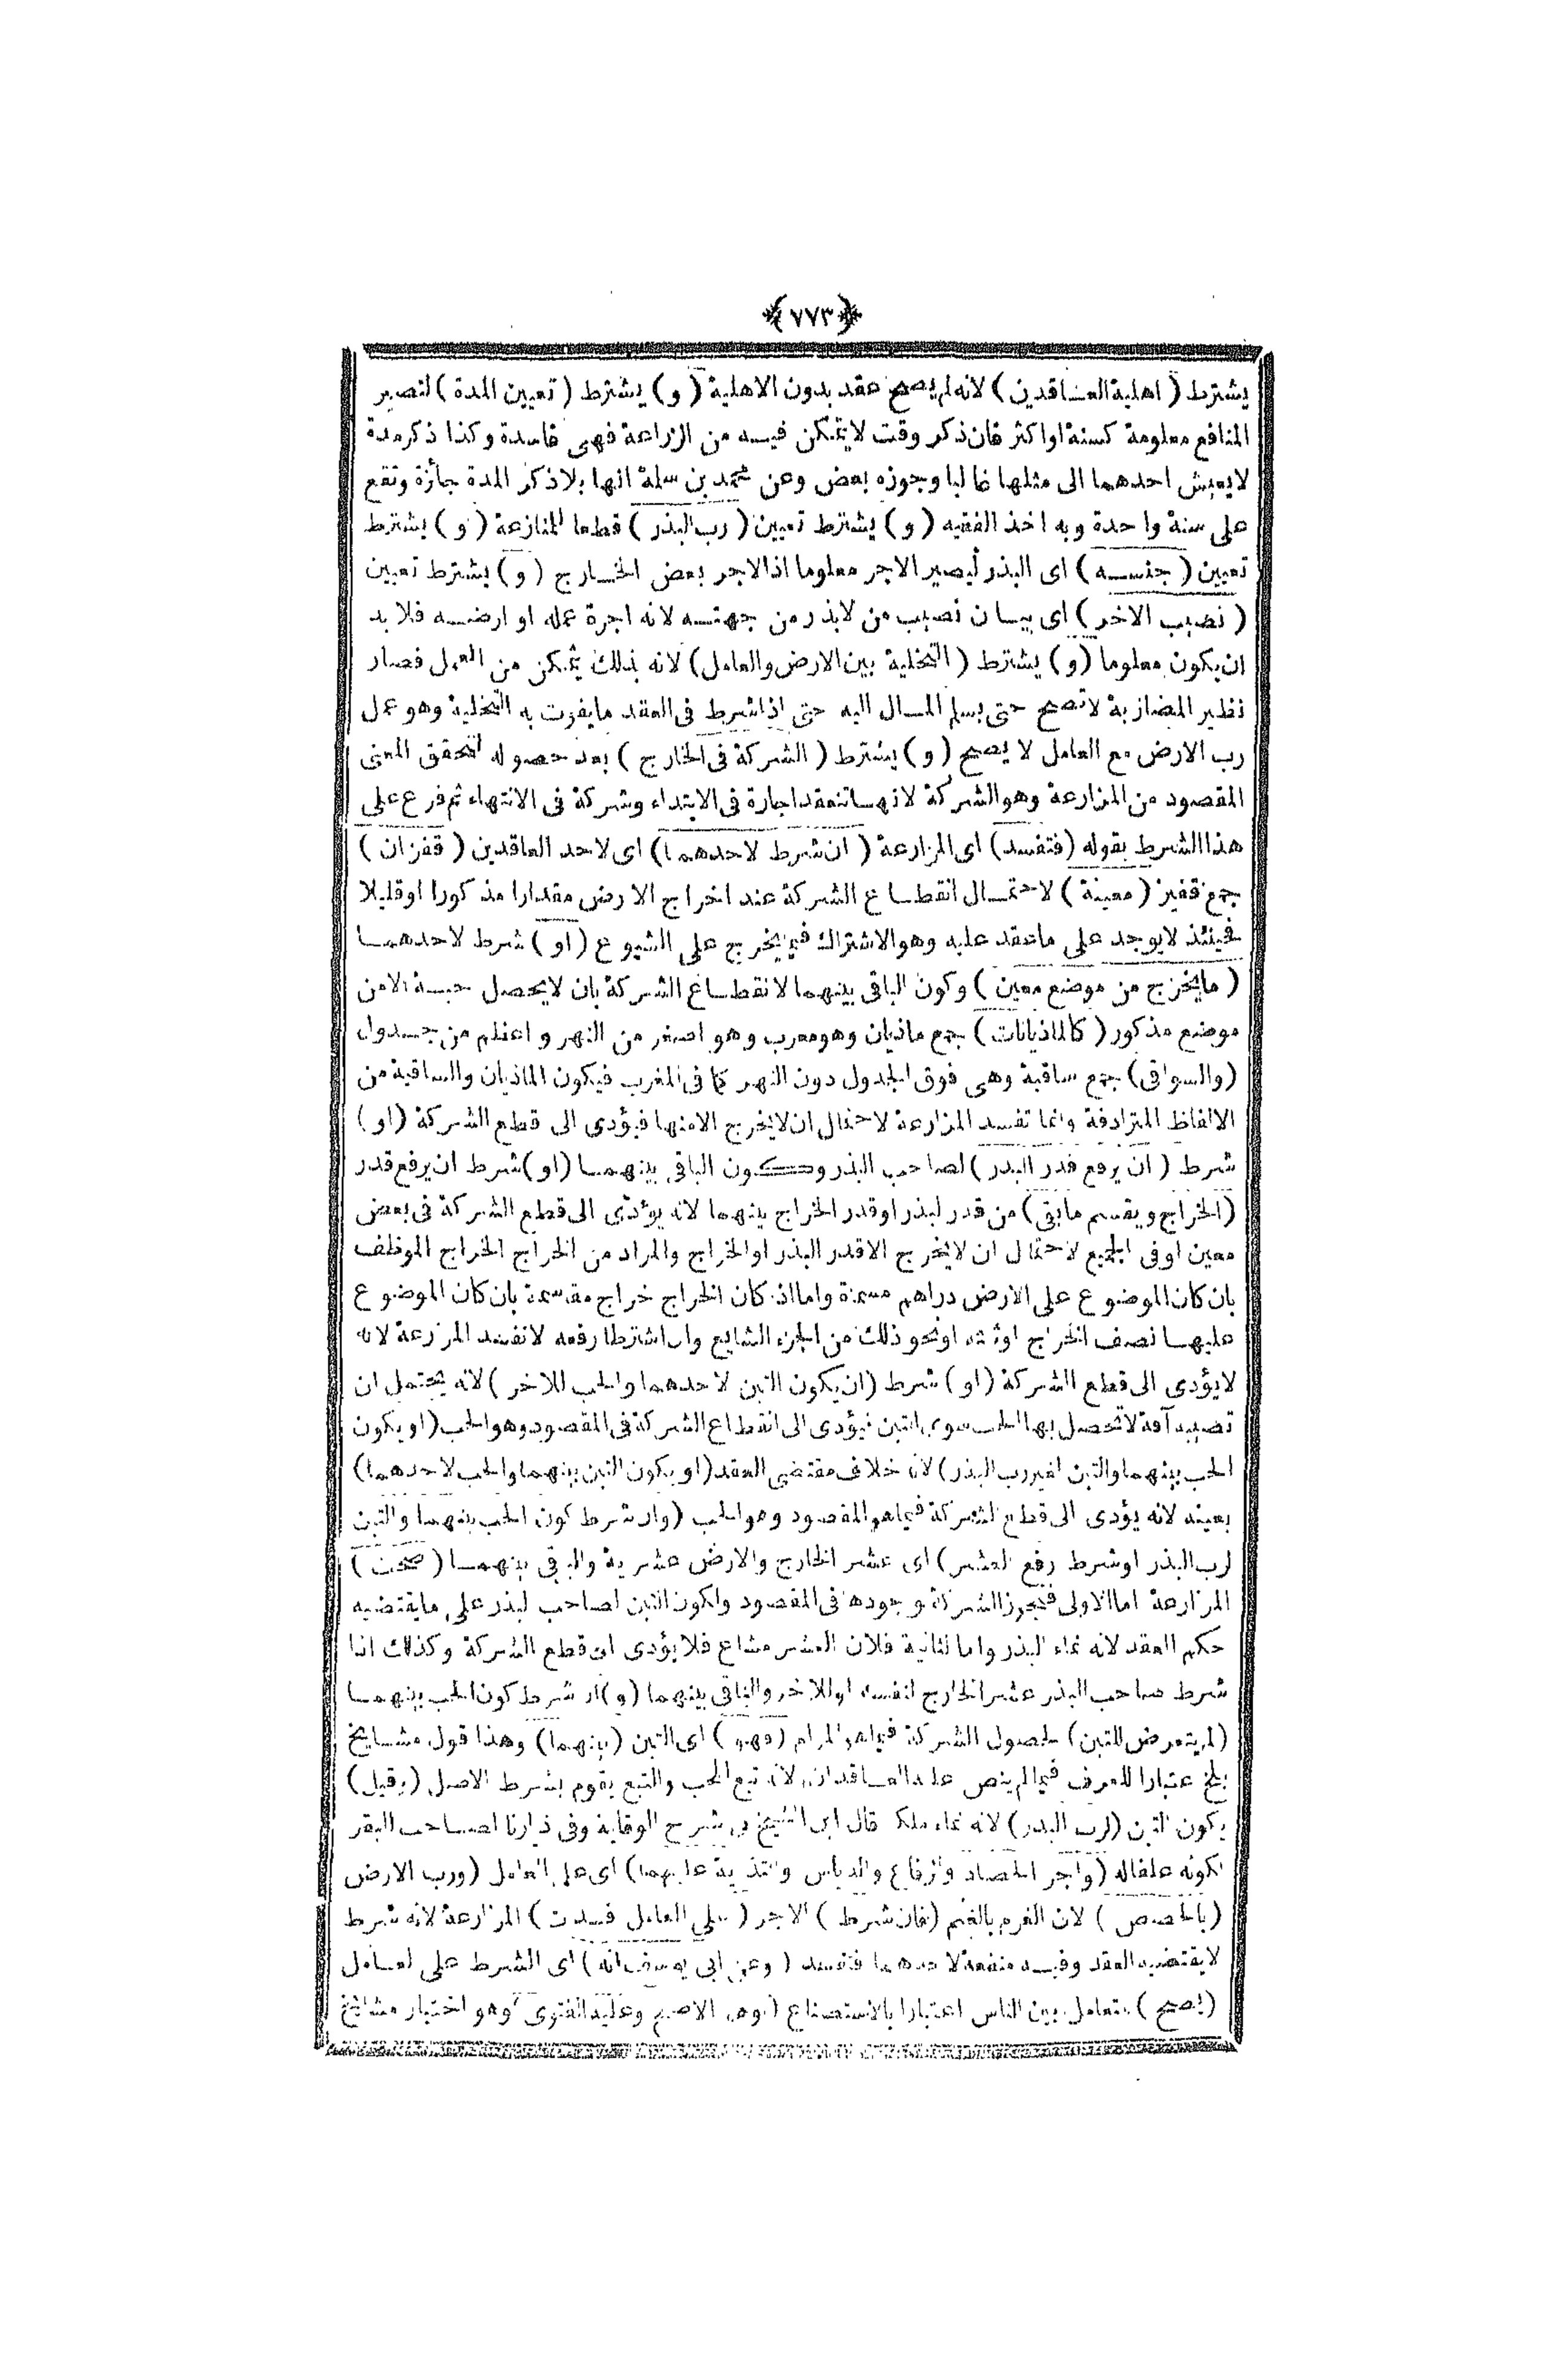 ﴿٧٧٣﴾
يشترط ( اهلية العاقدين ) لانه لم يصح عقد بدون الاهلية ( و ) يشترط ( تعيين المدة ) لتصير
المنافع معلومة كسنة او اكثر فان ذكر وقت لا يتمكن فيه من الزراعة فهى فاسدة وكذا ذكر مدة
لا يعيش احدهما الى مثلها غالبا وجوزه بعض وعن محمد بن سلمة انها بلا ذكر المدة جائزة وتقع
على سنة واحدة وبه اخذ الفقيه ( و ) يشترط تعيين ( رب البذر ) قطعا للمنازعة ( و ) يشترط
تعيين ( جنسه ) اى البذر ليصير الاجر معلوما اذ الاجر بعض الخارج ( و ) يشترط تعيين
( نصيب الاخر ) اى بيان نصيب من لا بذر من جهته لانه اجرة عمله او ارضه فلا بد
ان يكون معلوما ( و ) يشترط ( التخلية بين الارض والعامل ) لانه بذلك يتمكن من العمل فصار
نظير المضاربة لا تصح حتى يسلم المال اليه حتى اذا شرط فى العقد ما يفوت به التخلية وهو عمل
رب الارض مع العامل لا يصح ( و ) يشترط ( الشركة فى الخارج ) بعد حصوله لتحقق المعنى
المقصود من المزارعة وهو الشركة لانها تنعقد اجارة فى الابتداء وشركة فى الانتهاء ثم فرع على
هذا الشرط بقوله ( فتفسد ) اى المزارعة ( ان شرط لاحدهما ) اى لاحد العاقدين ( قفزان )
جمع قفيز ( معينة ) لاحتمال انقطاع الشركة عند اخراج الارض مقدارا مذكورا او قليلا
فحينئذ لا يوجد على ما عقد عليه وهو الاشتراك فيما يخرج على الشيوع ( او ) شرط لاحدهما
( ما يخرج من موضع معين ) وكون الباقى بينهما لانقطاع الشركة بان لا يحصل حبة الا من
موضع مذكور ( كالماذيانات ) جمع ماذيان وهو معرب وهو اصغر من النهر واعظم من جدول
( والسواقى ) جمع ساقية وهى فوق الجدول دون النهر كما فى المغرب فيكون الماذيان والساقية من
الالفاظ المترادفة وانما تفسد المزارعة لاحتمال ان لا يخرج الا منها فيؤدى الى قطع الشركة ( او )
شرط ( ان يرفع قدر البذر ) لصاحب البذر وكون الباقى بينهما ( او ) شرط ان يرفع قدر
( الخراج ويقسم ما بقى ) من قدر البذر او قدر الخراج بينهما لانه يؤدى الى قطع الشركة فى بعض
معين او فى الجميع لاحتمال ان لا يخرج الا قدر البذر او الخراج والمراد من الخراج الخراج الموظف
بان كان الموضوع على الارض دراهم مسماة واما اذ كان الخراج خراج مقاسمة بان كان الموضوع
عليها نصف الخراج او ثلثه او نحو ذلك من الجزء الشايع وان اشترطا رفعه لا تفسد المزارعة لانه
لا يؤدى الى قطع الشركة ( او ) شرط ( ان يكون التبن لاحدهما والحب للاخر ) لانه يحتمل ان
تصيبه آفة لا تحصل بها الحب سوى التبن فيؤدى الى انقطاع الشركة فى المقصود وهو الحب ( او يكون
الحب بينهما والتبن لغير رب البذر ) لانه خلاف مقتضى العقد ( او يكون التبن بينهما والحب لاحدهما )
بعينه لانه يؤدى الى قطع الشركة فيما هو المقصود وهو الحب ( وان شرط كون الحب بينهما والتبن
لرب البذر او شرط رفع العشر ) اى عشر الخارج والارض عشرية والباقى بينهما ( صحت )
المزارعة اما الاولى فلجواز الشركة وجودها فى المقصود ولكون التبن لصاحب البذر على ما يقتضيه
حكم العقد لانه نماء البذر واما الثانية فلان العشر مشاع فلا يؤدى الى قطع الشركة وكذلك اذا
شرط صاحب البذر عشر الخارج لنفسه او للاخر والباقى بينهما ( و ) ان شرط كون الحب بينهما
( لم يتعرض للتبن ) لحصول الشركة فيما هو المرام ( فهو ) اى التبن ( بينهما ) وهذا قول مشايخ
بلخ اعتبارا للعرف فيما لم ينص عليه العاقدان ولانه تبع الحب والتبع يقوم بشرط الاصل ( وقيل )
يكون التبن ( لرب البذر ) لانه نماء ملكه قال ابن الشيخ فى شرح الوقاية وفى ديارنا لصاحب البقر
لكونه علفا له ( واجر الحصاد والرفاع والدياس والتذرية عليهما ) اى على العامل ( ورب الارض
( بالحصص ) لان الغرم بالغنم ( فان شرط ) الاجر ( على العامل فسدت ) المزارعة لانه شرط
لا يقتضيه العقد وفيه منفعة لاحدهما فتفسد ( وعن ابى يوسف انه ) اى الشرط على العامل
( يصح ) لتعامل بين الناس اعتبارا بالاستصناع ( وهو الاصح وعليه الفتوى ) وهو اختيار مشايخ